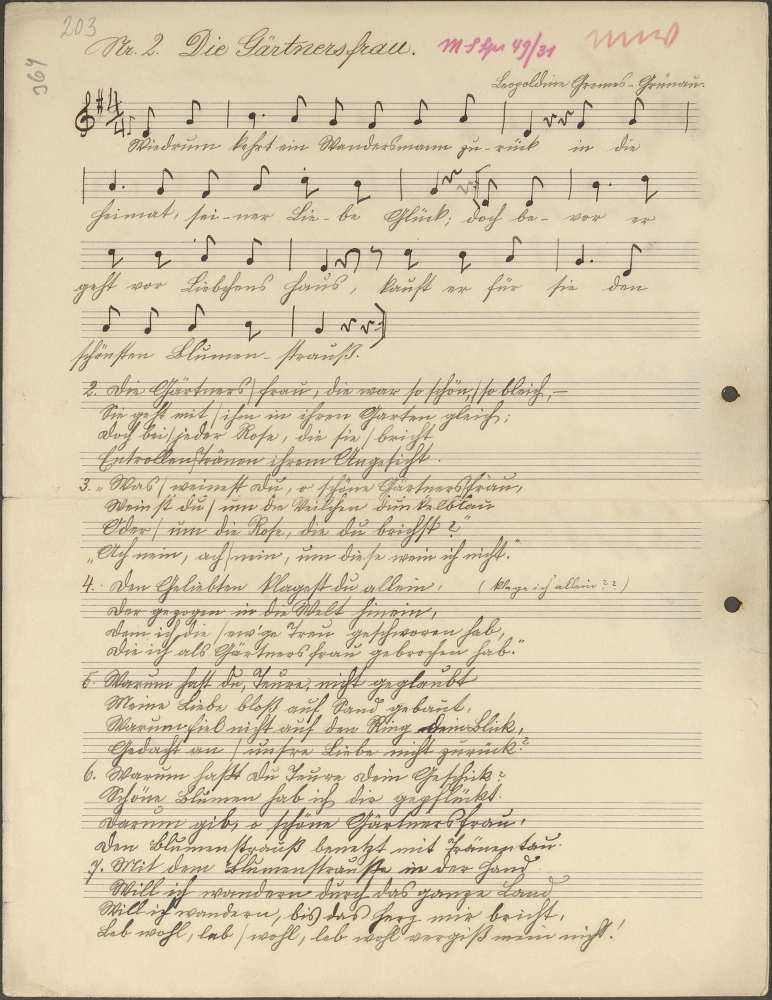 203
364
Nr. 2. Die Gärtnersfrau.
49/31
Leopoldine Gremes - Grünau.
Wiedrum kehrt ein Wandersmann zu-rück in die
Heimat, sei-ner Lie-be Glück; doch be-vor er
geht vor Liebchens Haus, kauft er für sie den
schönsten Blumen-strauß.
2. Die Gärtners/frau, die war so schön,/so bleich, –
Sie geht mit/ihm in ihren Garten gleich;
Doch bei/jeder Rose, die sie/bricht
Entrollen/Tränen ihrem Angesicht.
3. „Was/weinest Du, o schöne Gärtnersfrau,
Weinst du/um die Veilchen dunkelblau
Oder/um die Rose, die du brichst?"
„Ach nein, ach/nein, um diese wein ich nicht."
4. Den Geliebten klagest du allein, (klage ich allein??)
Der gezogen in die Welt hinein,
Dem ich die/ew'ge Treu geschworen hab,
Die ich als Gärtnersfrau gebrochen hab."
5. Warum hast du, Teure, nicht geglaubt
Meine Liebe bloß auf Sand gebaut,
Warum fiel nicht auf den Ring dein Blick,
Gedacht an/unsre Liebe nicht zurück?
6. Warum haßt Du Teure Dein Geschick?
Schöne Blumen hab ich dir gepflückt.
Darum gib, o schöne Gärtnersfrau,
Den Blumenstrauß benetzt mit Tränentau.
7. Mit dem Blumenstrauße in der Hand
Will ich wandern durch das ganze Land
Will ich wandern, bis das Herz mir bricht,
Leb wohl, leb/wohl, leb wohl vergiß mein nicht!